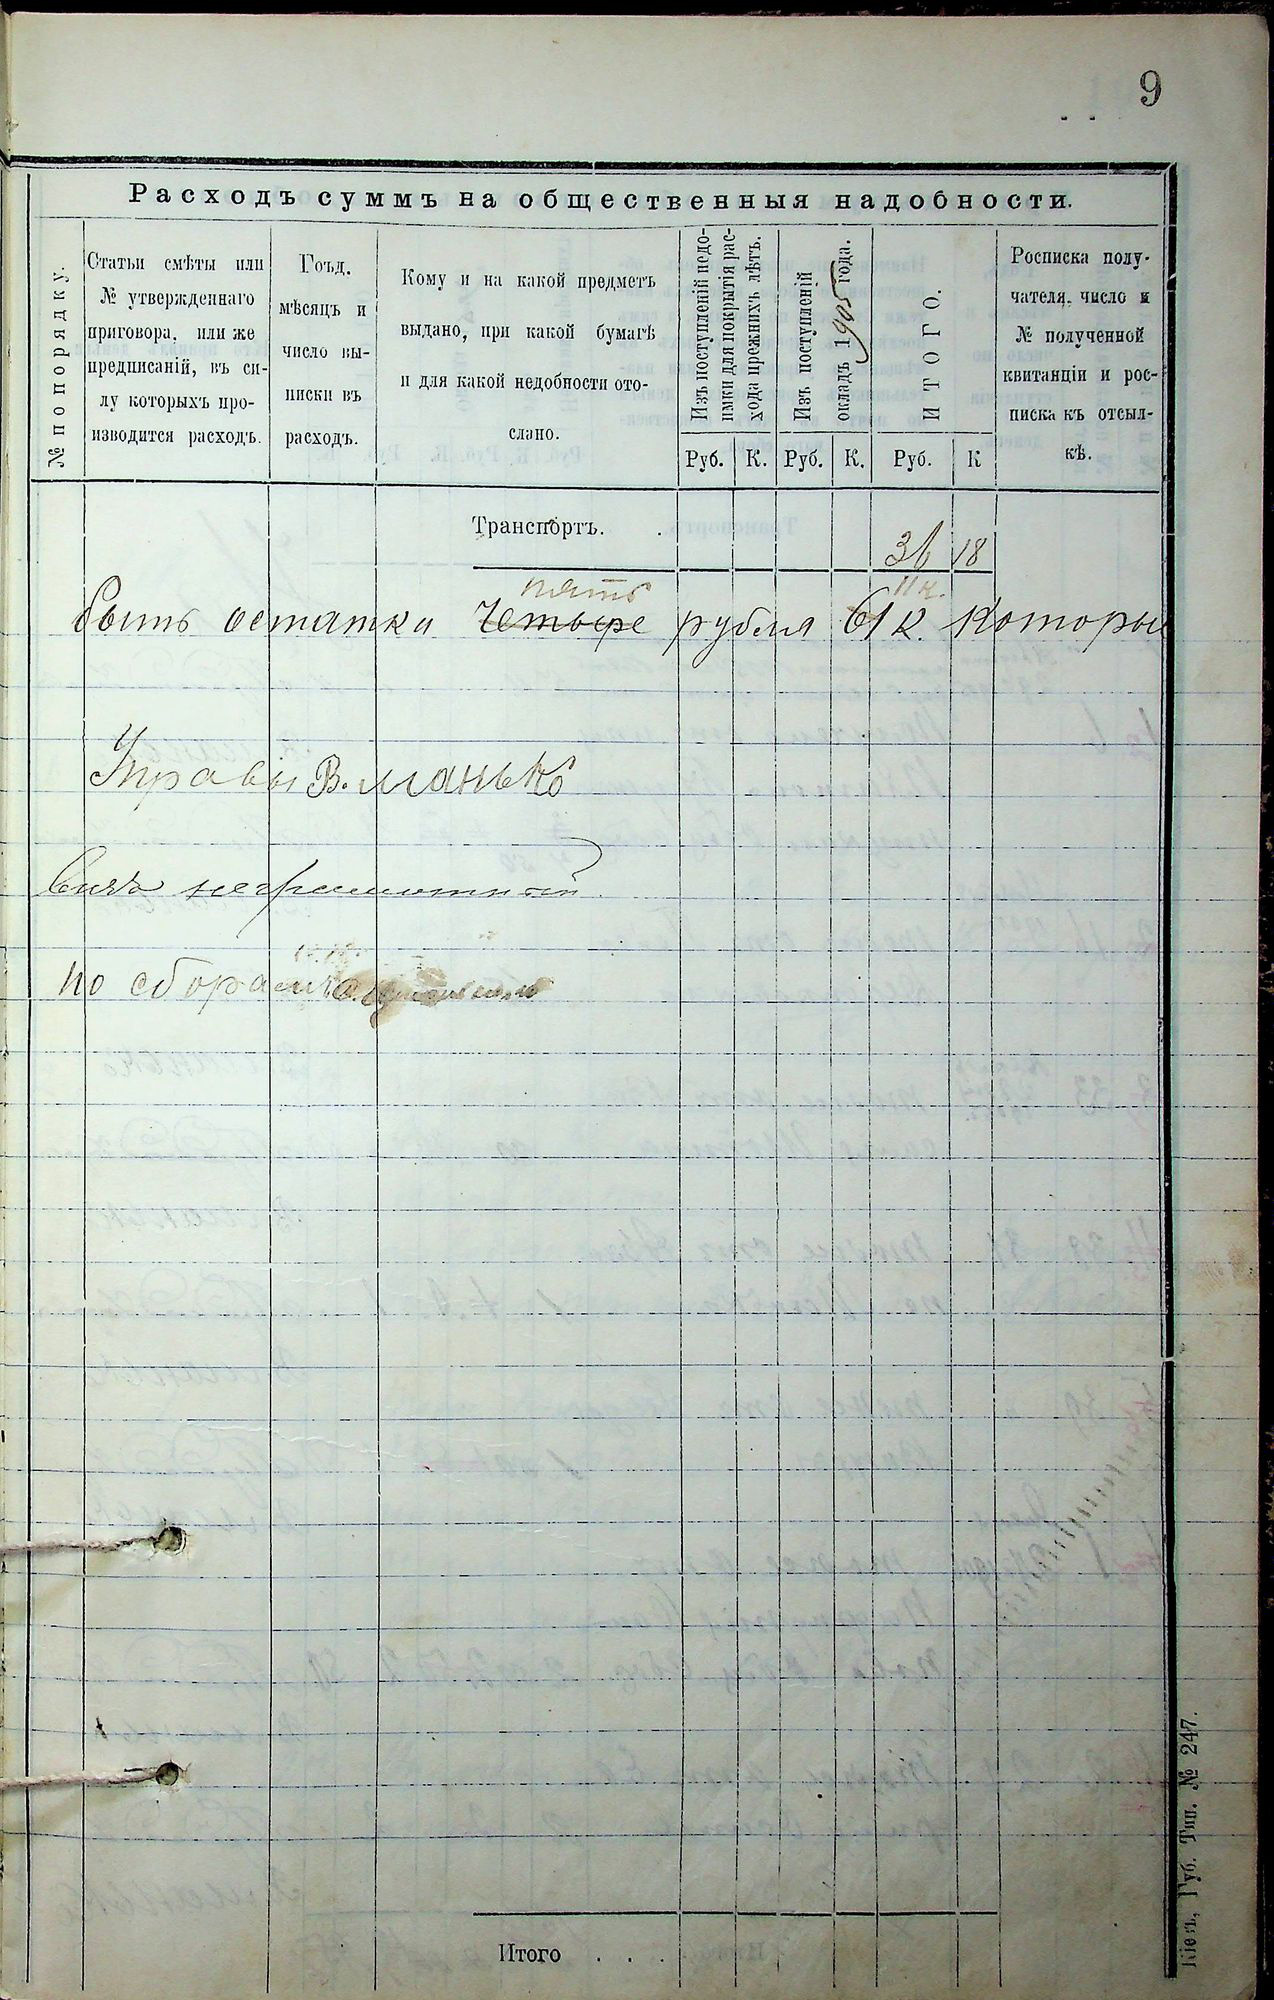 9
Расходъ суммъ на общественныя надобности.
№ по порядку.
Статьи смѣты или
№ утвержденнаго
приговора, или же
предписаній, въ си-
лу которыхъ про-
изводится расходъ.
Гоъд.
мѣсяцъ и
число вы-
писки въ
расходъ.
Кому и на какой предметъ
выдано, при какой бумагѣ
и для какой недобности ото-
слано.
Изъ поступленій недо-
имки для покрытія рас-
хода прежнихъ лѣтъ.
Изъ поступленій
окладъ 1905 года.
ИТОГО.
Росписка полу-
чателя, число и
№ полученной
квитанціи и рос-
писка къ отсыл-
кѣ.
Руб. К. Руб. К. Руб. К
Транспортъ. 36 18
пять 11 к.
быть остатки четыре рубля 61 к. которые
Управы В. Манько
неграмотный
по сборамъ
Итого . . .
Кіевъ, Губ. Тип. № 247.